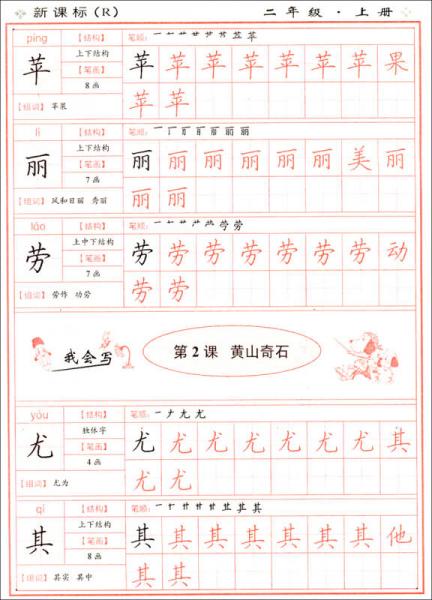 新课标(R) 二年级·上册
píng 【结构】 笔顺：一 十 艹 艹 芒 苎 苹 苹
苹 上下结构 苹 苹 苹 苹 苹 苹 苹 果
【笔画】
8画 苹 苹
【组词】 苹果
lì 【结构】 笔顺：
丽 上下结构 丽 丽 丽 丽 丽 丽 美 丽
【笔画】
7画 丽 丽
【组词】 风和日丽 秀丽
láo 【结构】 笔顺：
劳 上中下结构 劳 劳 劳 劳 劳 劳 劳 动
【笔画】
7画 劳 劳
【组词】 劳作 功劳
我会写 第2课 黄山奇石
yóu 【结构】 笔顺：一 ナ 九 尤
尤 独体字 尤 尤 尤 尤 尤 尤 尤 其
【笔画】
4画 尤 尤
【组词】 尤为
qí 【结构】 笔顺：
其 上下结构 其 其 其 其 其 其 其 他
【笔画】
8画 其 其
【组词】 其实 其中